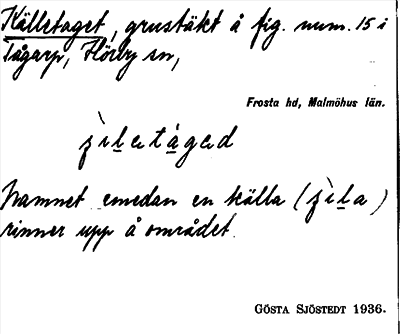 Källetaget, grustäkt å fig. num. 15 i
Tågarp, Hörby sn,
Frosta hd, Malmöhus län.
Namnet emedan en källa
rinner upp å området.
GÖSTA SJÖSTEDT 1936.